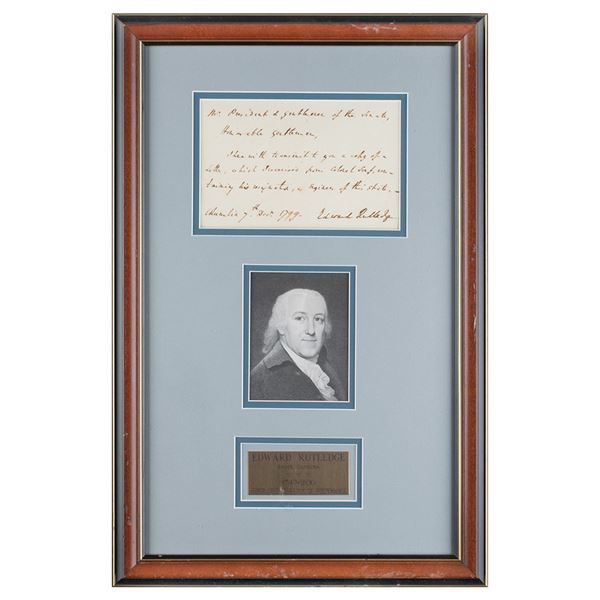 Mr. President & gentlemen of the Senate,
Honorable gentlemen,
I herewith transmit to you a copy of a
letter, which I received from Colonel Senf, con-
taining his resignation, as Engineer of this State,—
Columbia 7th Decr. 1799. Edward Rutledge
EDWARD RUTLEDGE
SOUTH CAROLINA
1749-1800